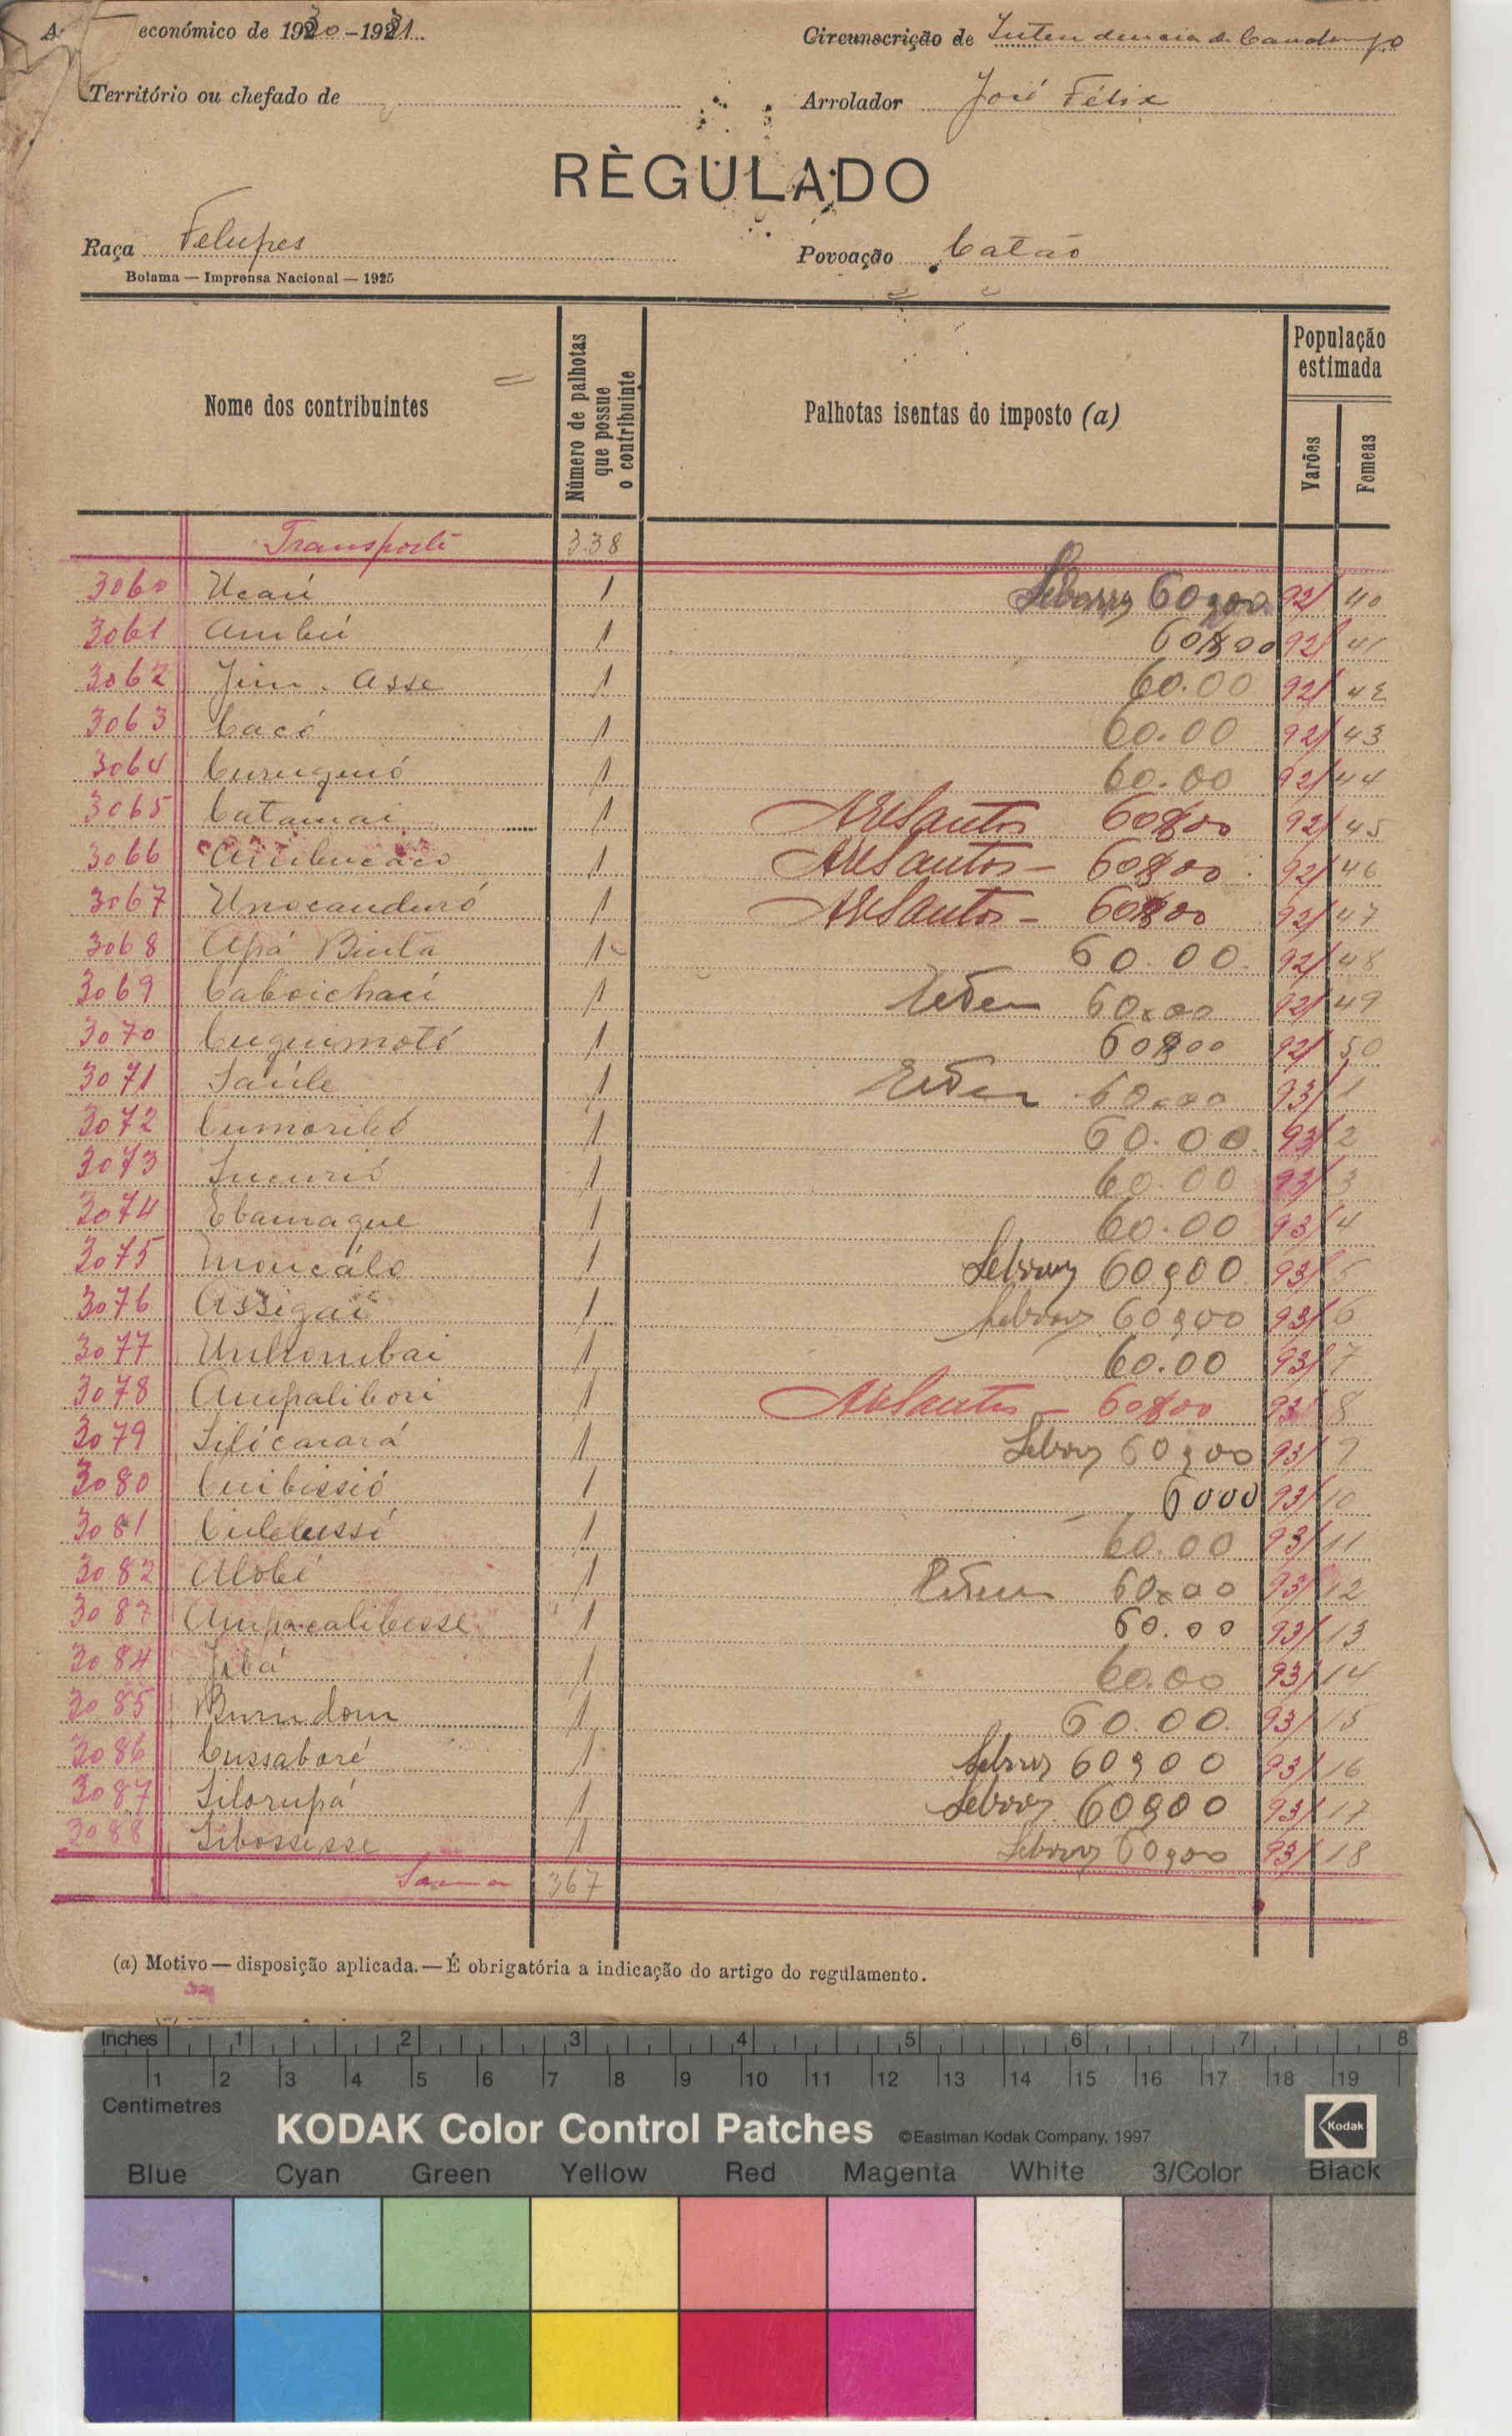 económico de 1930-1931
Circunscrição de Intendencia de Canchungo
Território ou chefado de
Arrolador José Félix
RÈGULADO
Raça Felupes
Povoação Catão
Bolama — Imprensa Nacional — 1925
Nome dos contribuintes
Número de palhotas que possue o contribuinte
Palhotas isentas do imposto (a)
População estimada
Varões
Femeas
Transporte 338
3060 Ucaú 1 60$00 92/ 40
3061 Ambú 1 60$00 92/ 41
3062 Jim. Asse 1 60.00 92/ 42
3063 Cacó 1 60.00 92/ 43
3064 1 60.00 92/ 44
3065 Catamai 1 ARSantos 60$00 92/ 45
3066 1 ARSantos - 60$00 92/ 46
3067 1 ARSantos - 60$00 92/ 47
3068 Apá Binta 1 60.00. 92/ 48
3069 Caboichaú 1 60x00 92/ 49
3070 Cuguimoté 1 60$00 92/ 50
3071 Saúle 1 60x00 93/ 1
3072 1 60.00. 93/ 2
3073 1 60.00 93/ 3
3074 Ebamaque 1 60.00 93/ 4
3075 Moncálo 1 60$00 93/ 5
3076 Assigaú 1 60$00 93/ 6
3077 1 60.00 93/ 7
3078 Ampalibori 1 ARSantos - 60$00 93/ 8
3079 1 60$00 93/ 9
3080 Cuibissió 1 6000 93/ 10
3081 1 60.00 93/ 11
3082 Alobé 1 60x00 93/ 12
3083 Ampacalibesse 1 60.00 93/ 13
3084 Jibá 1 60.00 93/ 14
3085 1 60.00. 93/ 15
3086 Cussaboré 1 60$00 93/ 16
3087 Silorupá 1 60$00 93/ 17
3088 Sibossesse 1 60$00 93/ 18
Soma 367
(a) Motivo — disposição aplicada. — É obrigatória a indicação do artigo do regulamento.
Inches 1 2 3 4 5 6 7 8
1 2 3 4 5 6 7 8 9 10 11 12 13 14 15 16 17 18 19
Centimetres
KODAK Color Control Patches ©Eastman Kodak Company, 1997
Kodak
Blue Cyan Green Yellow Red Magenta White 3/Color Black